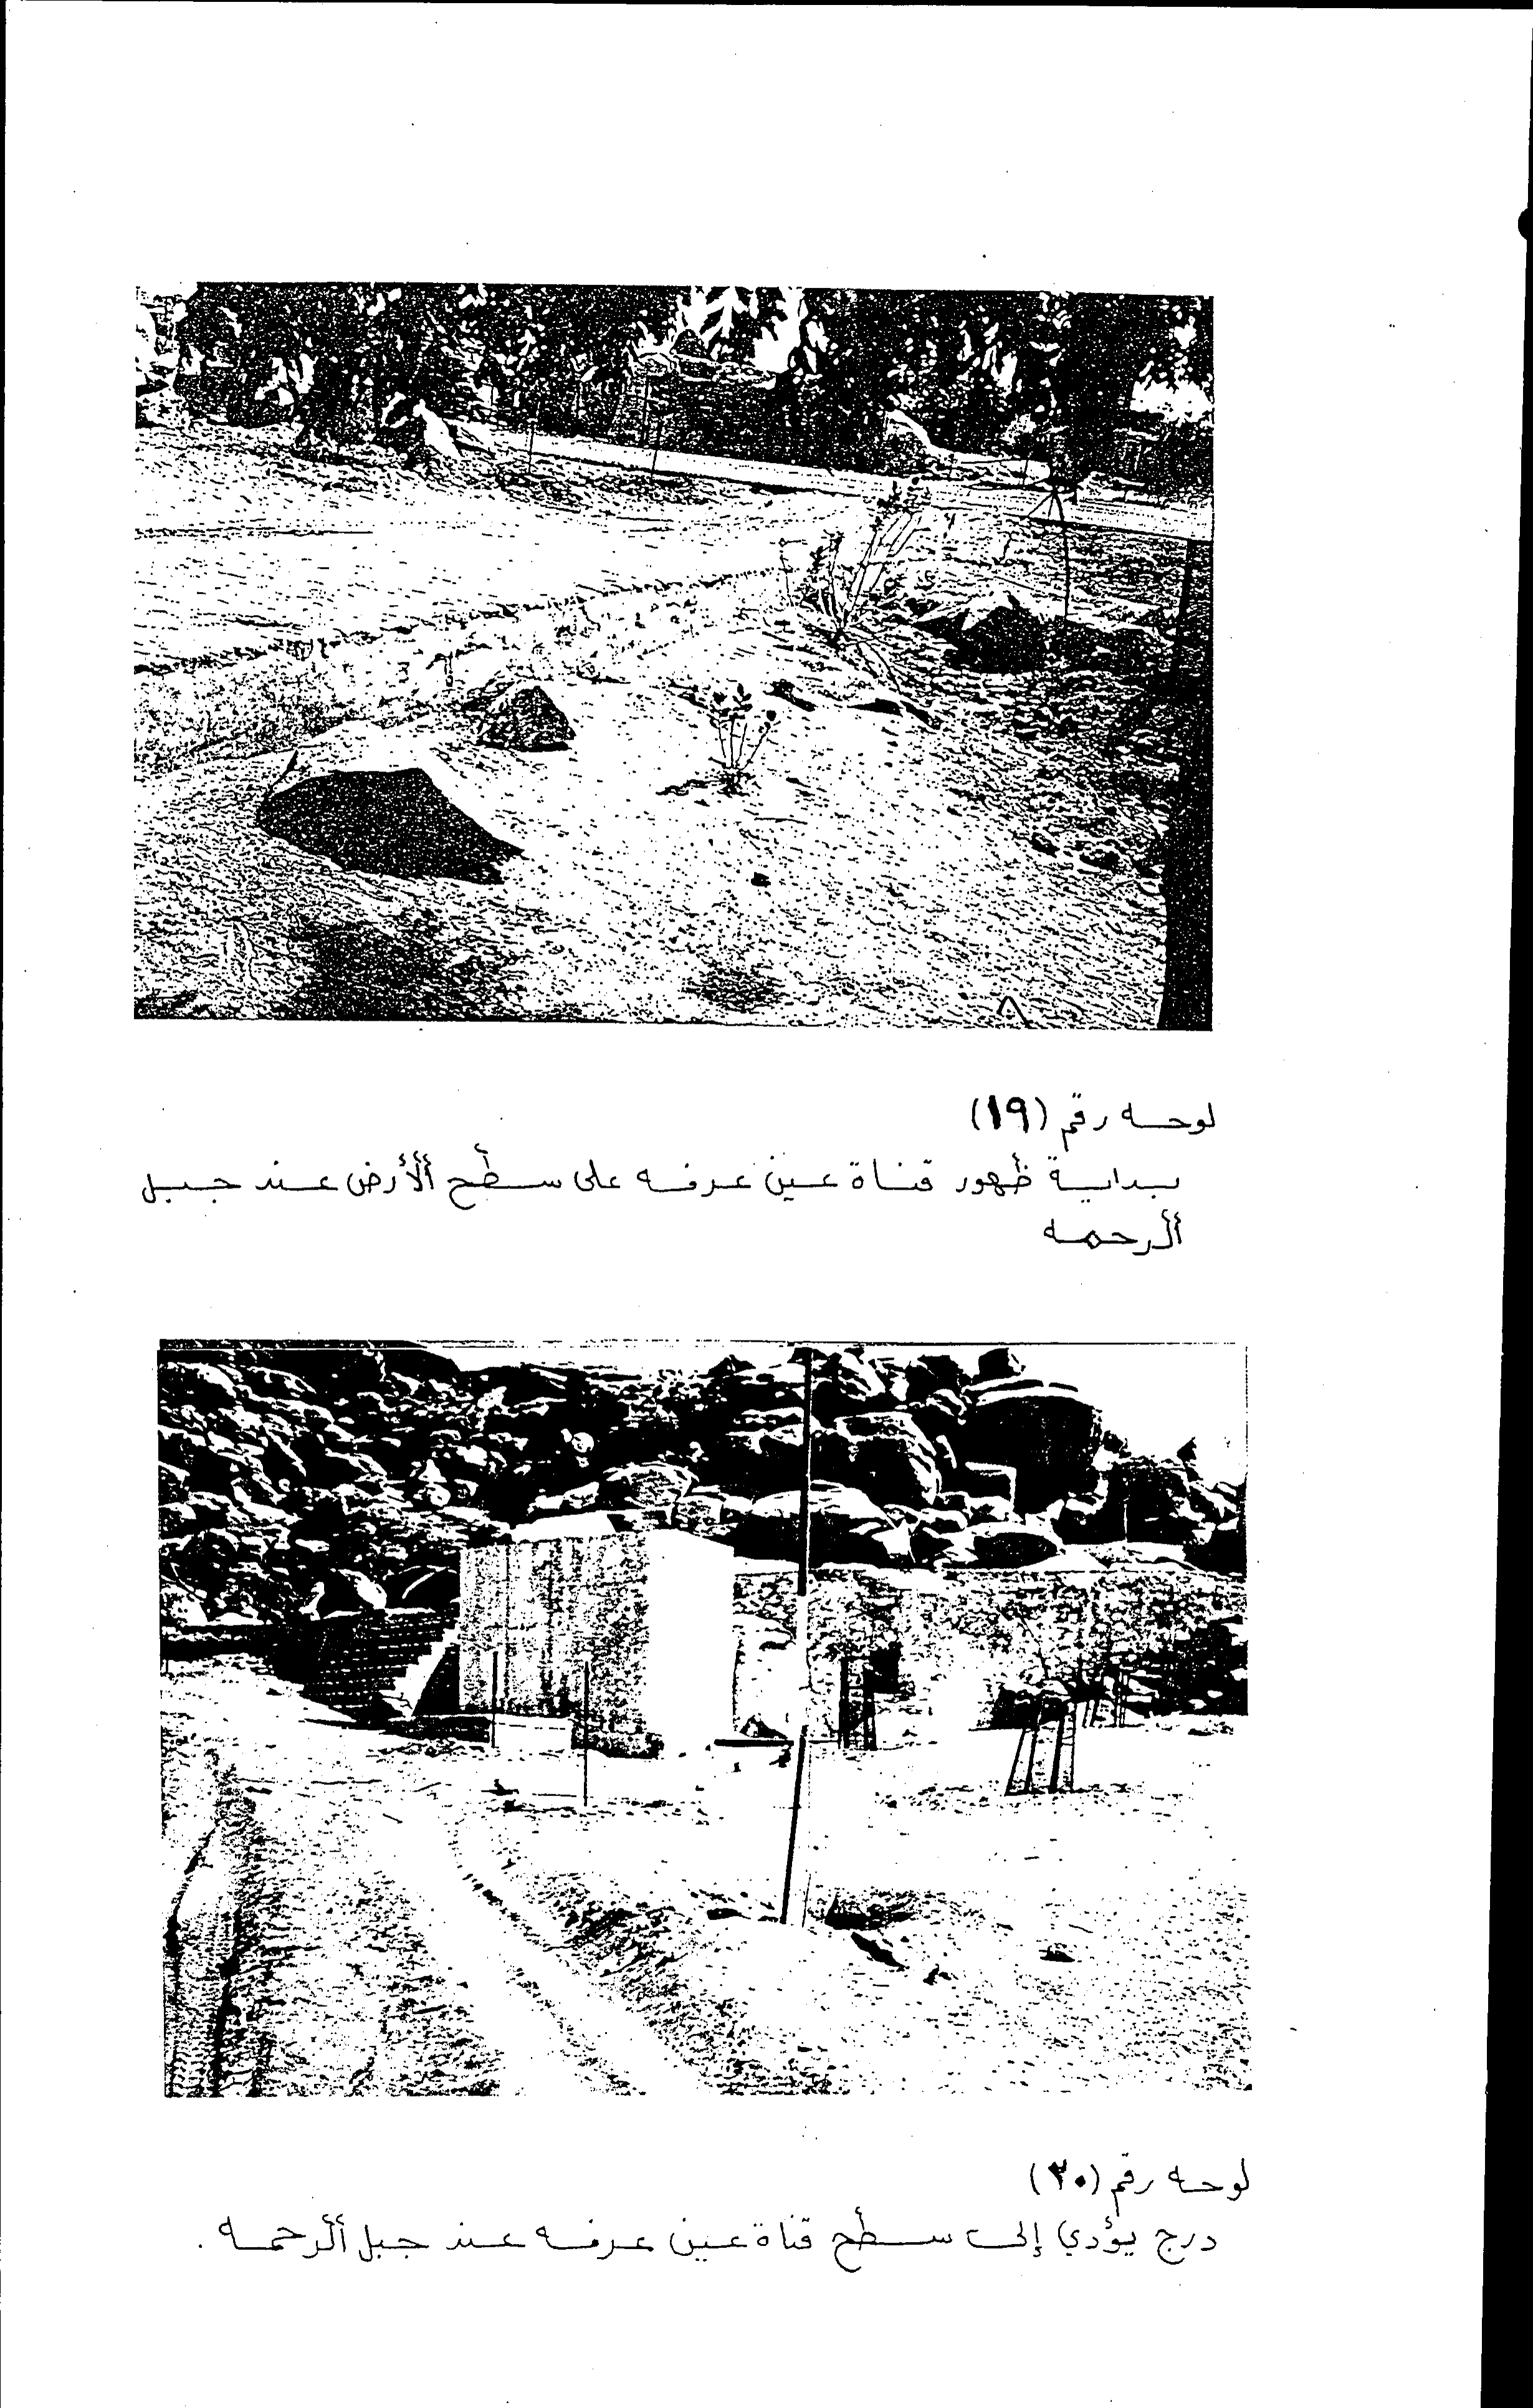 لوحه رقم (١٩)
بداية ظهور قناة عين عرفه على سطح الأرض عند جبل
الرحمه
لوحه رقم (٢٠)
درج يؤدي إلى سطح قناة عين عرفه عند جبل الرحمه .